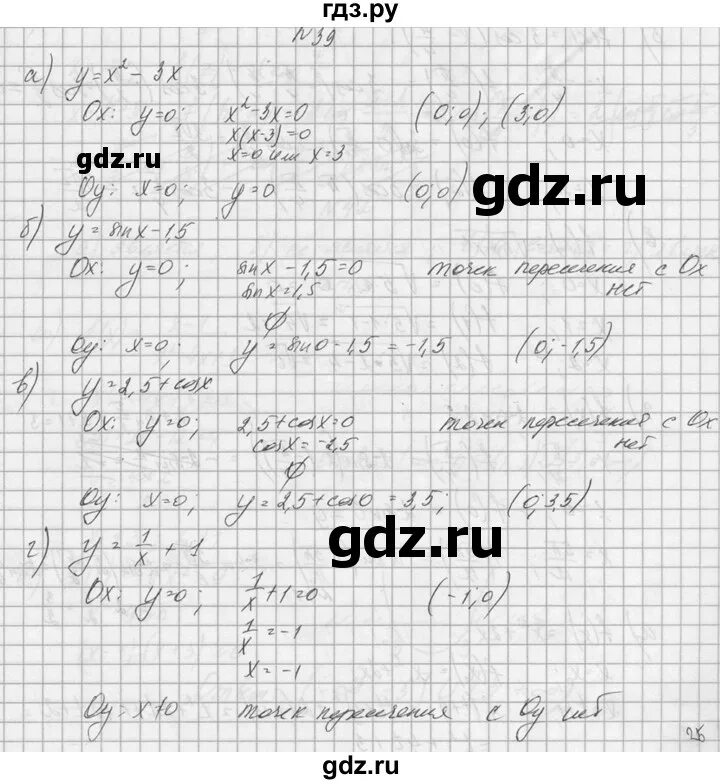 гдз.ру
№39
а) y = x² - 3x
Ox: y=0; x²-3x=0 (0;0); (3;0)
x(x-3)=0
x=0 или x=3
gdz.ru
gdz.ru
Oy: x=0; y=0 (0;0)
б) y = sinx - 1,5
Ox: y=0; sinx - 1,5 = 0 точек пересечения с Ox
sinx = 1,5 нет
∅
Oy: x=0; y = sin0 - 1,5 = -1,5 (0; -1,5)
в) y = 2,5 + cosx
Ox: y=0; 2,5 + cosx = 0 точек пересечения с Ox
cosx = -2,5 нет
∅
Oy: x=0; y = 2,5 + cos0 = 3,5; (0; 3,5)
г) y = 1/x + 1
gdz.ru
Ox: y=0; 1/x + 1 = 0 (-1; 0)
1/x = -1
x = -1
Oy = x≠0 точек пересечения с Oy нет
25
gdz.ru